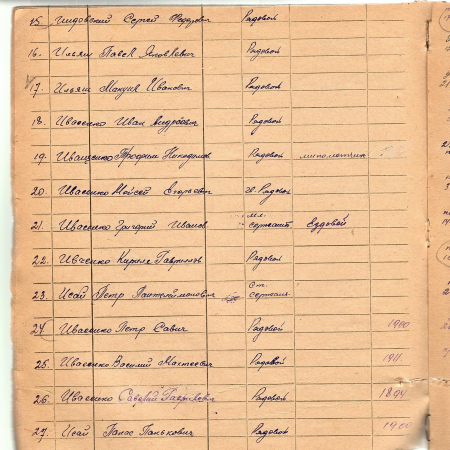 15. Сергей Федорович Рядовой
16. Ильяш Павел Яковлевич Рядовой
17. Ильяш Максим Иванович Рядовой
18. Иващенко Иван Рядовой
19. Иващенко Трофим Никодимов Рядовой минометчик
20. Иващенко Мойсей Егорьевич гв. Рядовой
21. Иващенко Григорий Иванов мл. сержант Ездовой
22. Ивченко Кирилл Гаврилов Рядовой
23. Исай Петр Пантелймонович ст. сержант
24. Иващенко Петр Савич Рядовой 1900
25. Иващенко Василий Матвеевич Рядовой 1911
26. Иващенко Савелий Гаврилович Рядовой 1894
27. Исай Панас Панькович Рядовой 1900